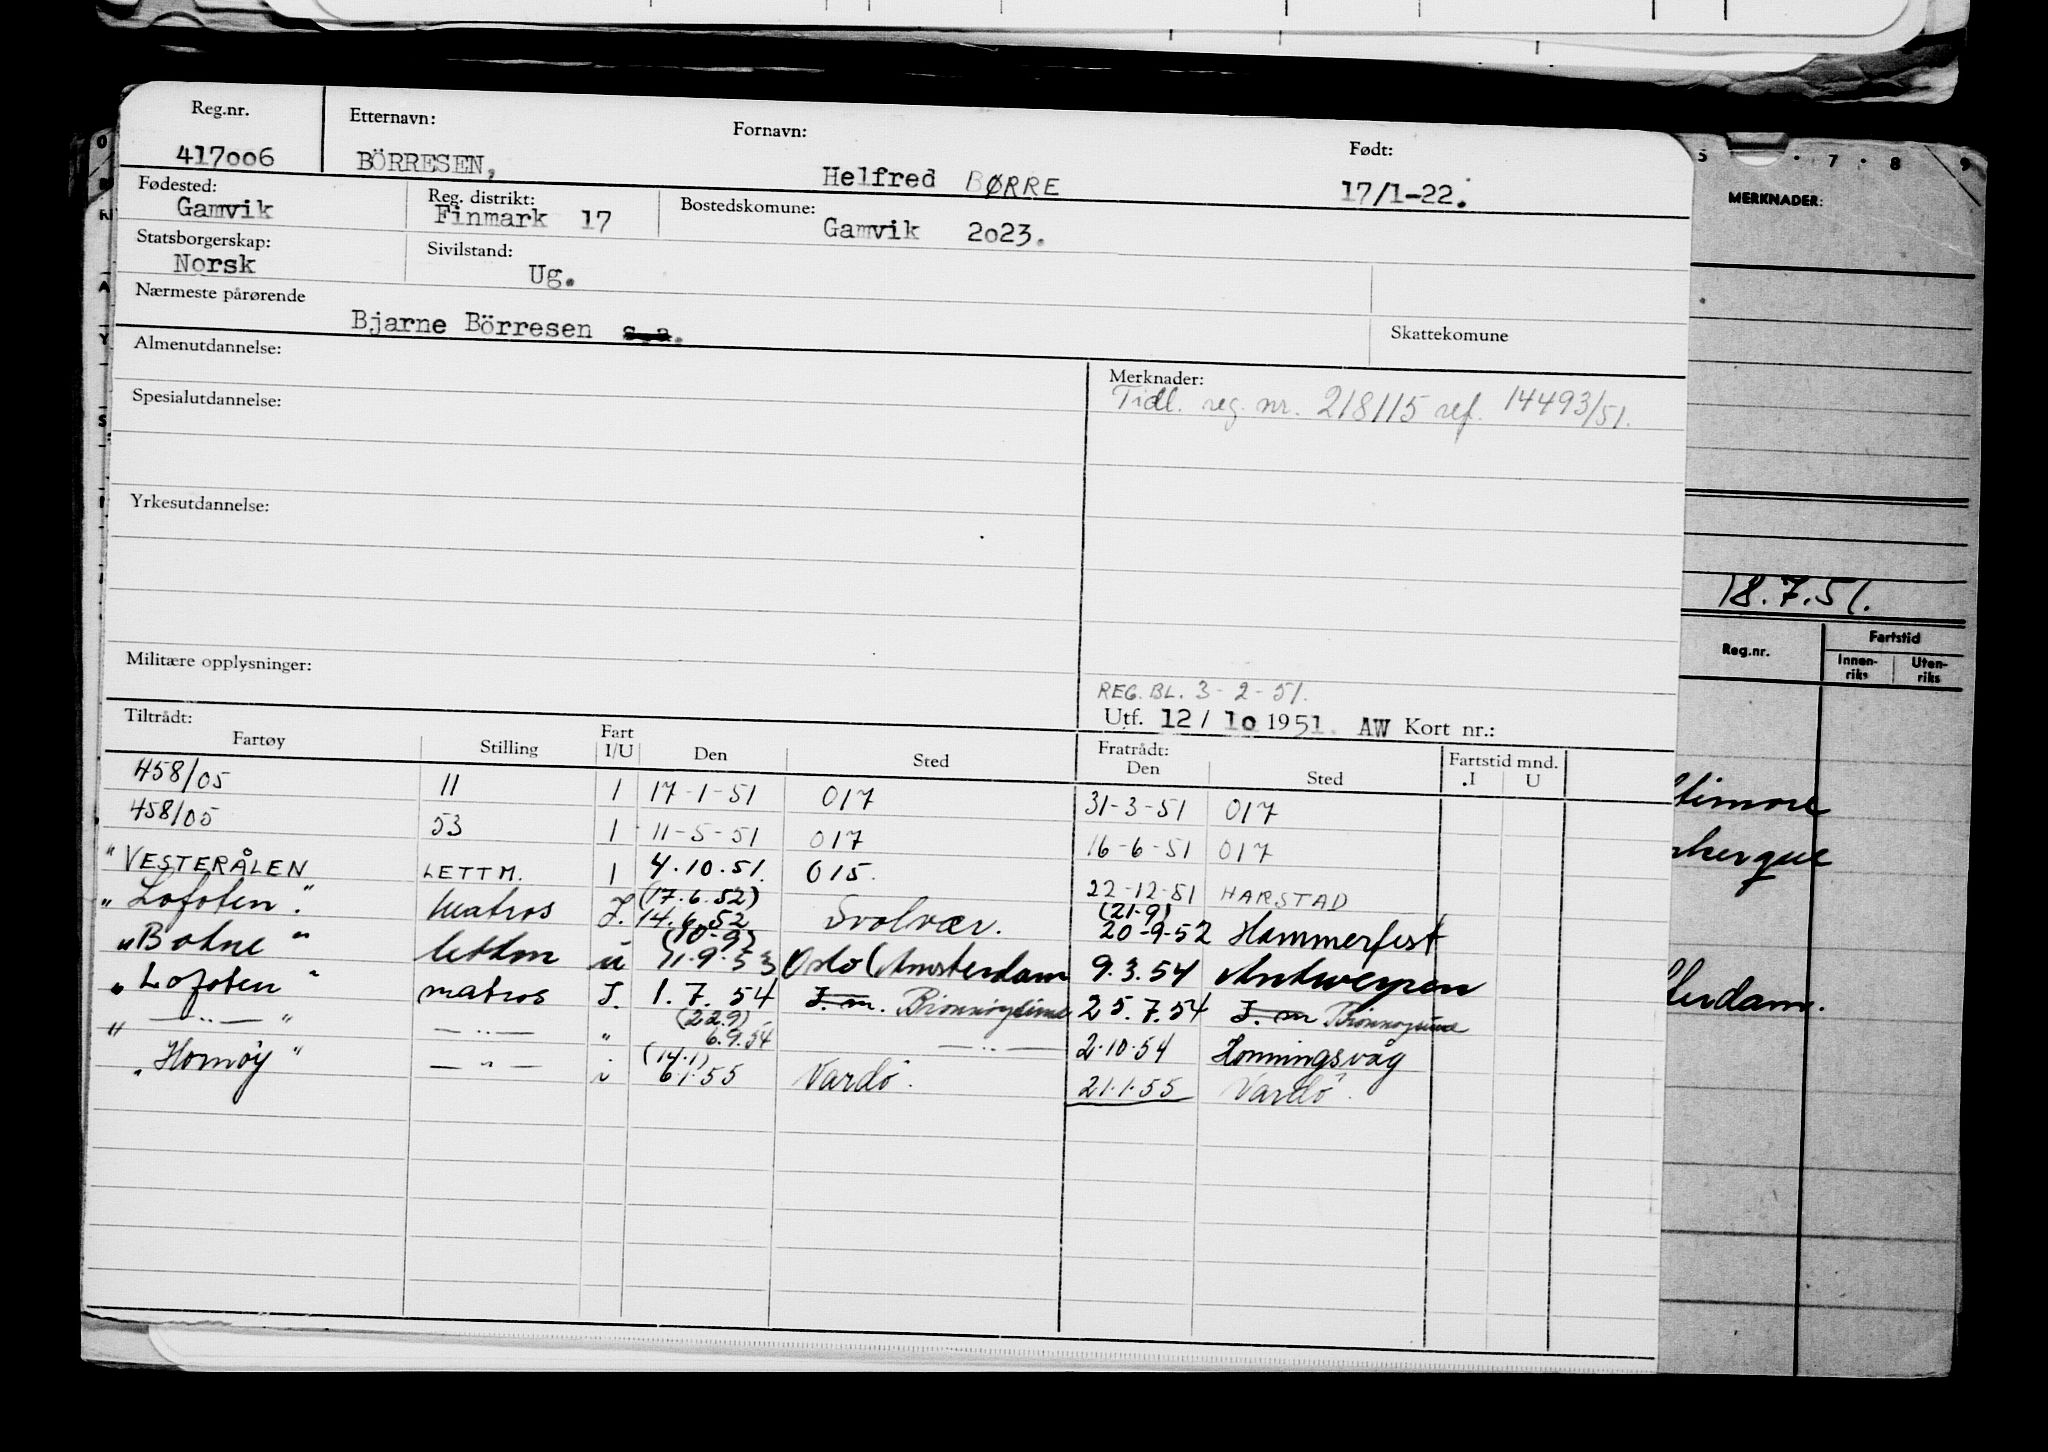 Reg.nr. Etternavn: Fornavn: Født:
417006 BÖRRESEN, Helfred BØRRE 17/1-22.
Fødested: Reg. distrikt: Bostedskomune:
Gamvik Finmark 17 Gamvik 2023.
Statsborgerskap: Sivilstand:
Norsk Ug.
Nærmeste pårørende
Bjarne Börresen s.a. Skattekomune
Almenutdannelse: Merknader:
Tidl. reg. nr. 218115 ref. 14493/51.
Spesialutdannelse:
Yrkesutdannelse:
Militære opplysninger:
REG. BL. 3-2-51.
Utf. 12/10 1951. AW Kort nr.:
Tiltrådt: Fratrådt: Fartstid mnd.
Fartøy Stilling Fart I/U Den Sted Den Sted I U
458/05 11 I 17-1-51 017 31-3-51 017
458/05 53 I 11-5-51 017 16-6-51 017
"VESTERÅLEN LETTM. I 4.10.51. 015. 22-12-51 HARSTAD
(17.6.52) (21-9)
"Lofoten". Matros I. 14.6.52 Svolvær. 20-9-52 Hammerfest
(10-9)
"Bohne" lettm u 11.9.53 Oslo (Amsterdam 9.3.54 Antwerpen
"Lofoten" matros I. 1.7.54 I.m. Brønnøysund 25.7.54 I.m Brønnøysund
(22.9)
" —..— " —..— " 6.9.54 —..— 2.10.54 Honningsvåg
(14.1)
"Hornøy" — " — i 6.1.55 Vardö. 21.1.55 Vardö.
5 . 7 . 8 9
MERKNADER:
18.7.51.
Reg.nr. Fartstid
Innen-riks Uten-riks
ltimore
rkerque
terdam.